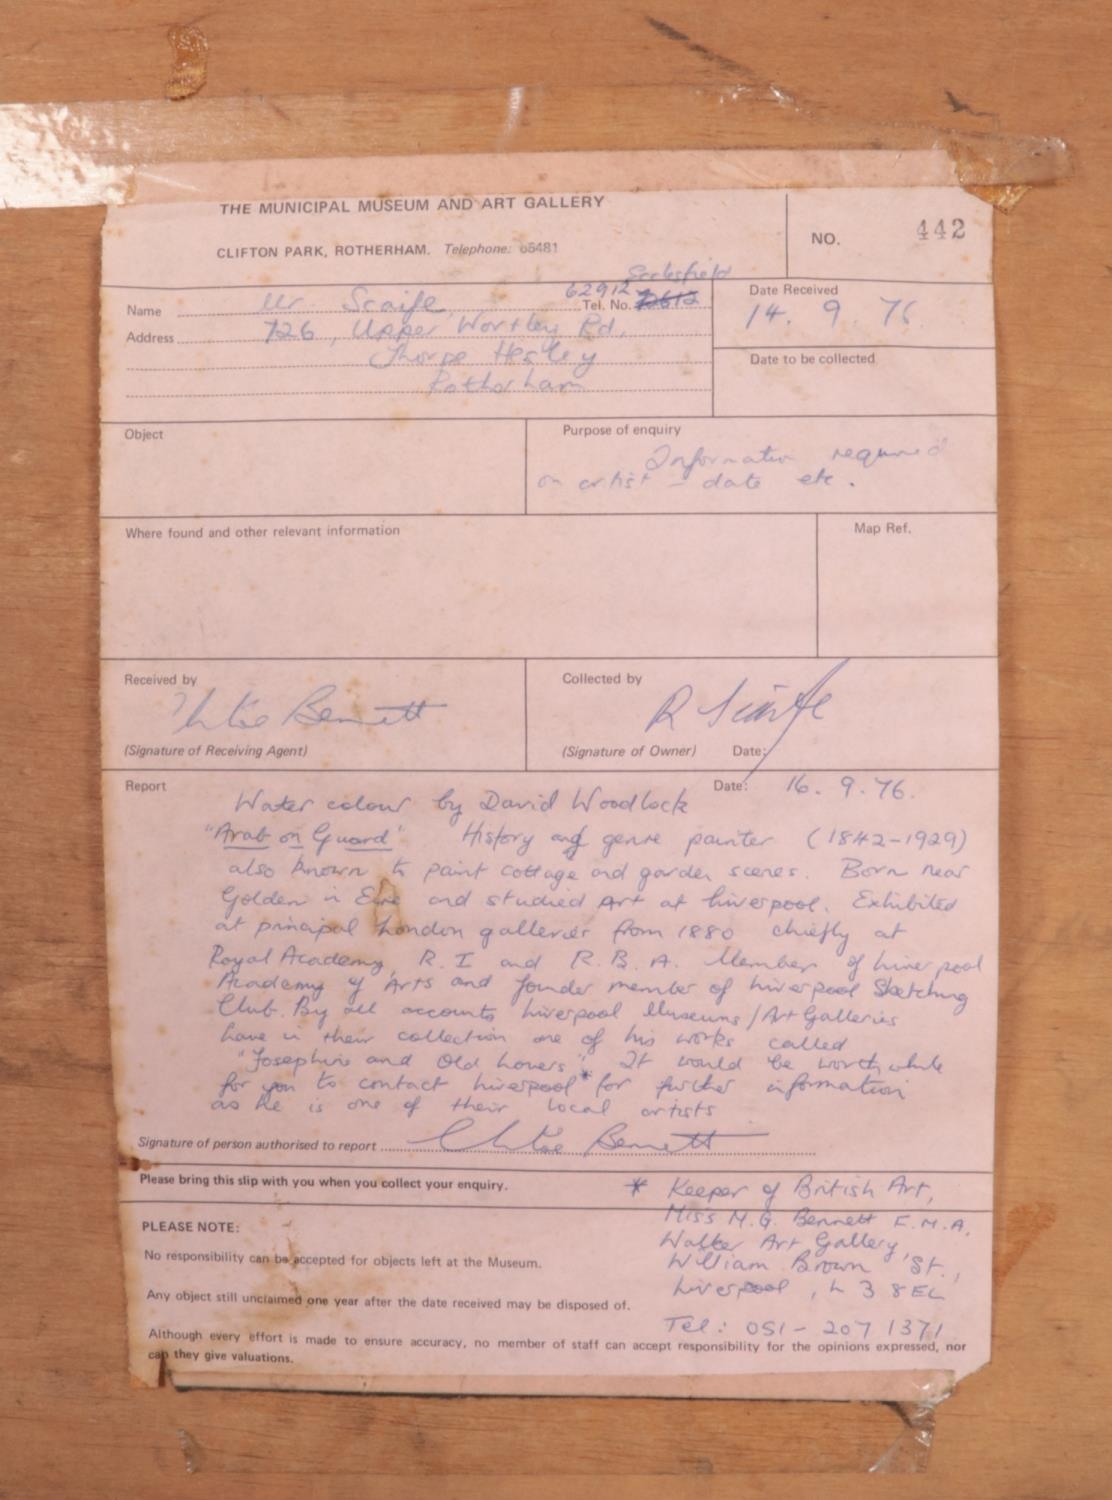 THE MUNICIPAL MUSEUM AND ART GALLERY
CLIFTON PARK, ROTHERHAM. Telephone: 65481
NO. 442
Name Mr Scaife
Ecclesfield
62912
Tel. No. 72612
Address 726, Upper Wortley Rd,
Thorpe Hesley
Rotherham
Date Received
14. 9 76
Date to be collected
Object
Purpose of enquiry
Information required
on artist - date etc.
Where found and other relevant information
Map Ref.
Received by
Chloe Bennett
(Signature of Receiving Agent)
Collected by
R Scaife
(Signature of Owner) Date:
Report
Date: 16. 9. 76.
Water colour by David Woodlock
"Arab on Guard" History and genre painter (1842-1929)
also known to paint cottage and garden scenes. Born near
Golden in Eire and studied Art at Liverpool. Exhibited
at principal London galleries from 1880 chiefly at
Royal Academy, R.I and R.B.A. Member of Liverpool
Academy of Arts and founder member of Liverpool Sketching
Club. By all accounts Liverpool Museums/Art Galleries
have in their collection one of his works called
"Josephine and Old Lovers". It would be worth while
for you to contact Liverpool* for further information
as he is one of their local artists
Signature of person authorised to report Chloe Bennett
Please bring this slip with you when you collect your enquiry.
* Keeper of British Art,
Miss M.G. Bennett F.M.A.
Walker Art Gallery,
William Brown St.,
Liverpool, L 3 8EL
Tel: 051-207 1371
PLEASE NOTE:
No responsibility can be accepted for objects left at the Museum.
Any object still unclaimed one year after the date received may be disposed of.
Although every effort is made to ensure accuracy, no member of staff can accept responsibility for the opinions expressed, nor
can they give valuations.